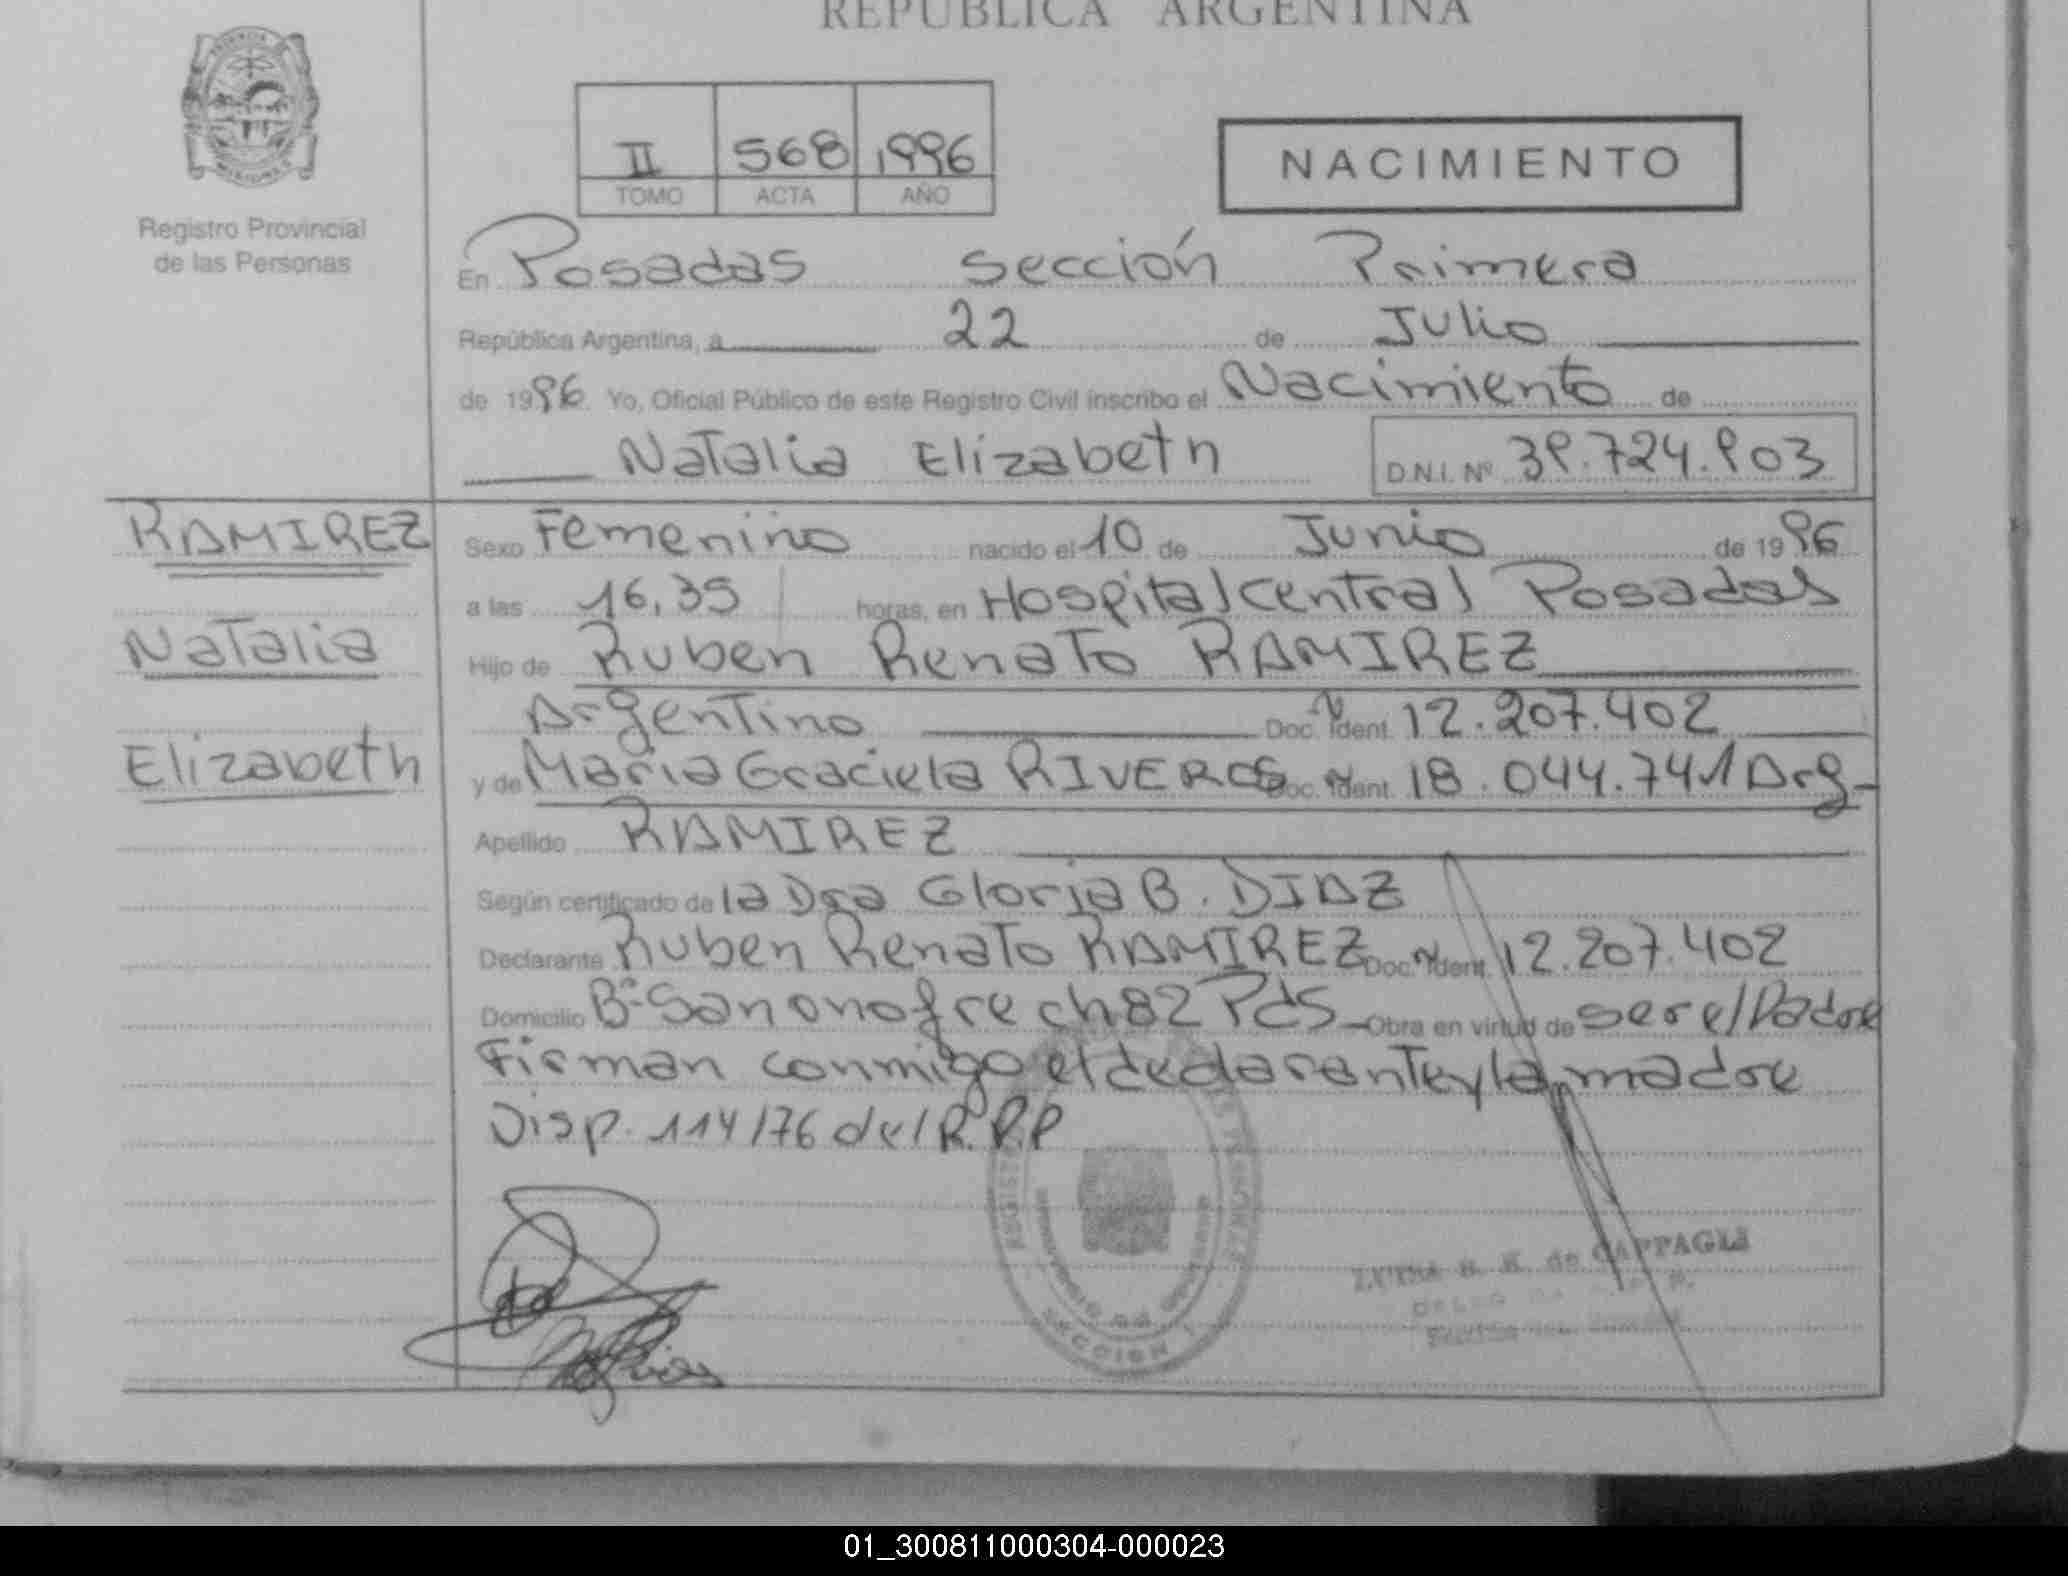 REPUBLICA ARGENTINA
PROVINCIA
MISIONES
Registro Provincial
de las Personas
II 568 1996
TOMO ACTA AÑO
NACIMIENTO
En Posadas sección Primera
República Argentina, a 22 de Julio
de 1996. Yo, Oficial Público de este Registro Civil inscribo el Nacimiento de
Natalia Elizabeth D.N.I. Nº 39.724.903
RAMIREZ
Natalia
Elizabeth
Sexo Femenino nacido el 10 de Junio de 1996
a las 16,35 horas, en Hospital central Posadas
Hijo de Ruben Renato RAMIREZ
Argentino Doc. Ident. 12.207.402
y de Maria Graciela RIVEROS Doc. Ident. 18.044.741 Arg-
Apellido RAMIREZ
Según certificado de la Dra Gloria B. DIAZ
Declarante Ruben Renato RAMIREZ Doc. Ident. 12.207.402
Domicilio Bº San onofre ch 82 Pds - Obra en virtud de ser el Padre
Firman conmigo el declarante y la madre
Disp. 114/76 del R.P.P
SECCION 1
de CAPPAGLI
01_300811000304-000023